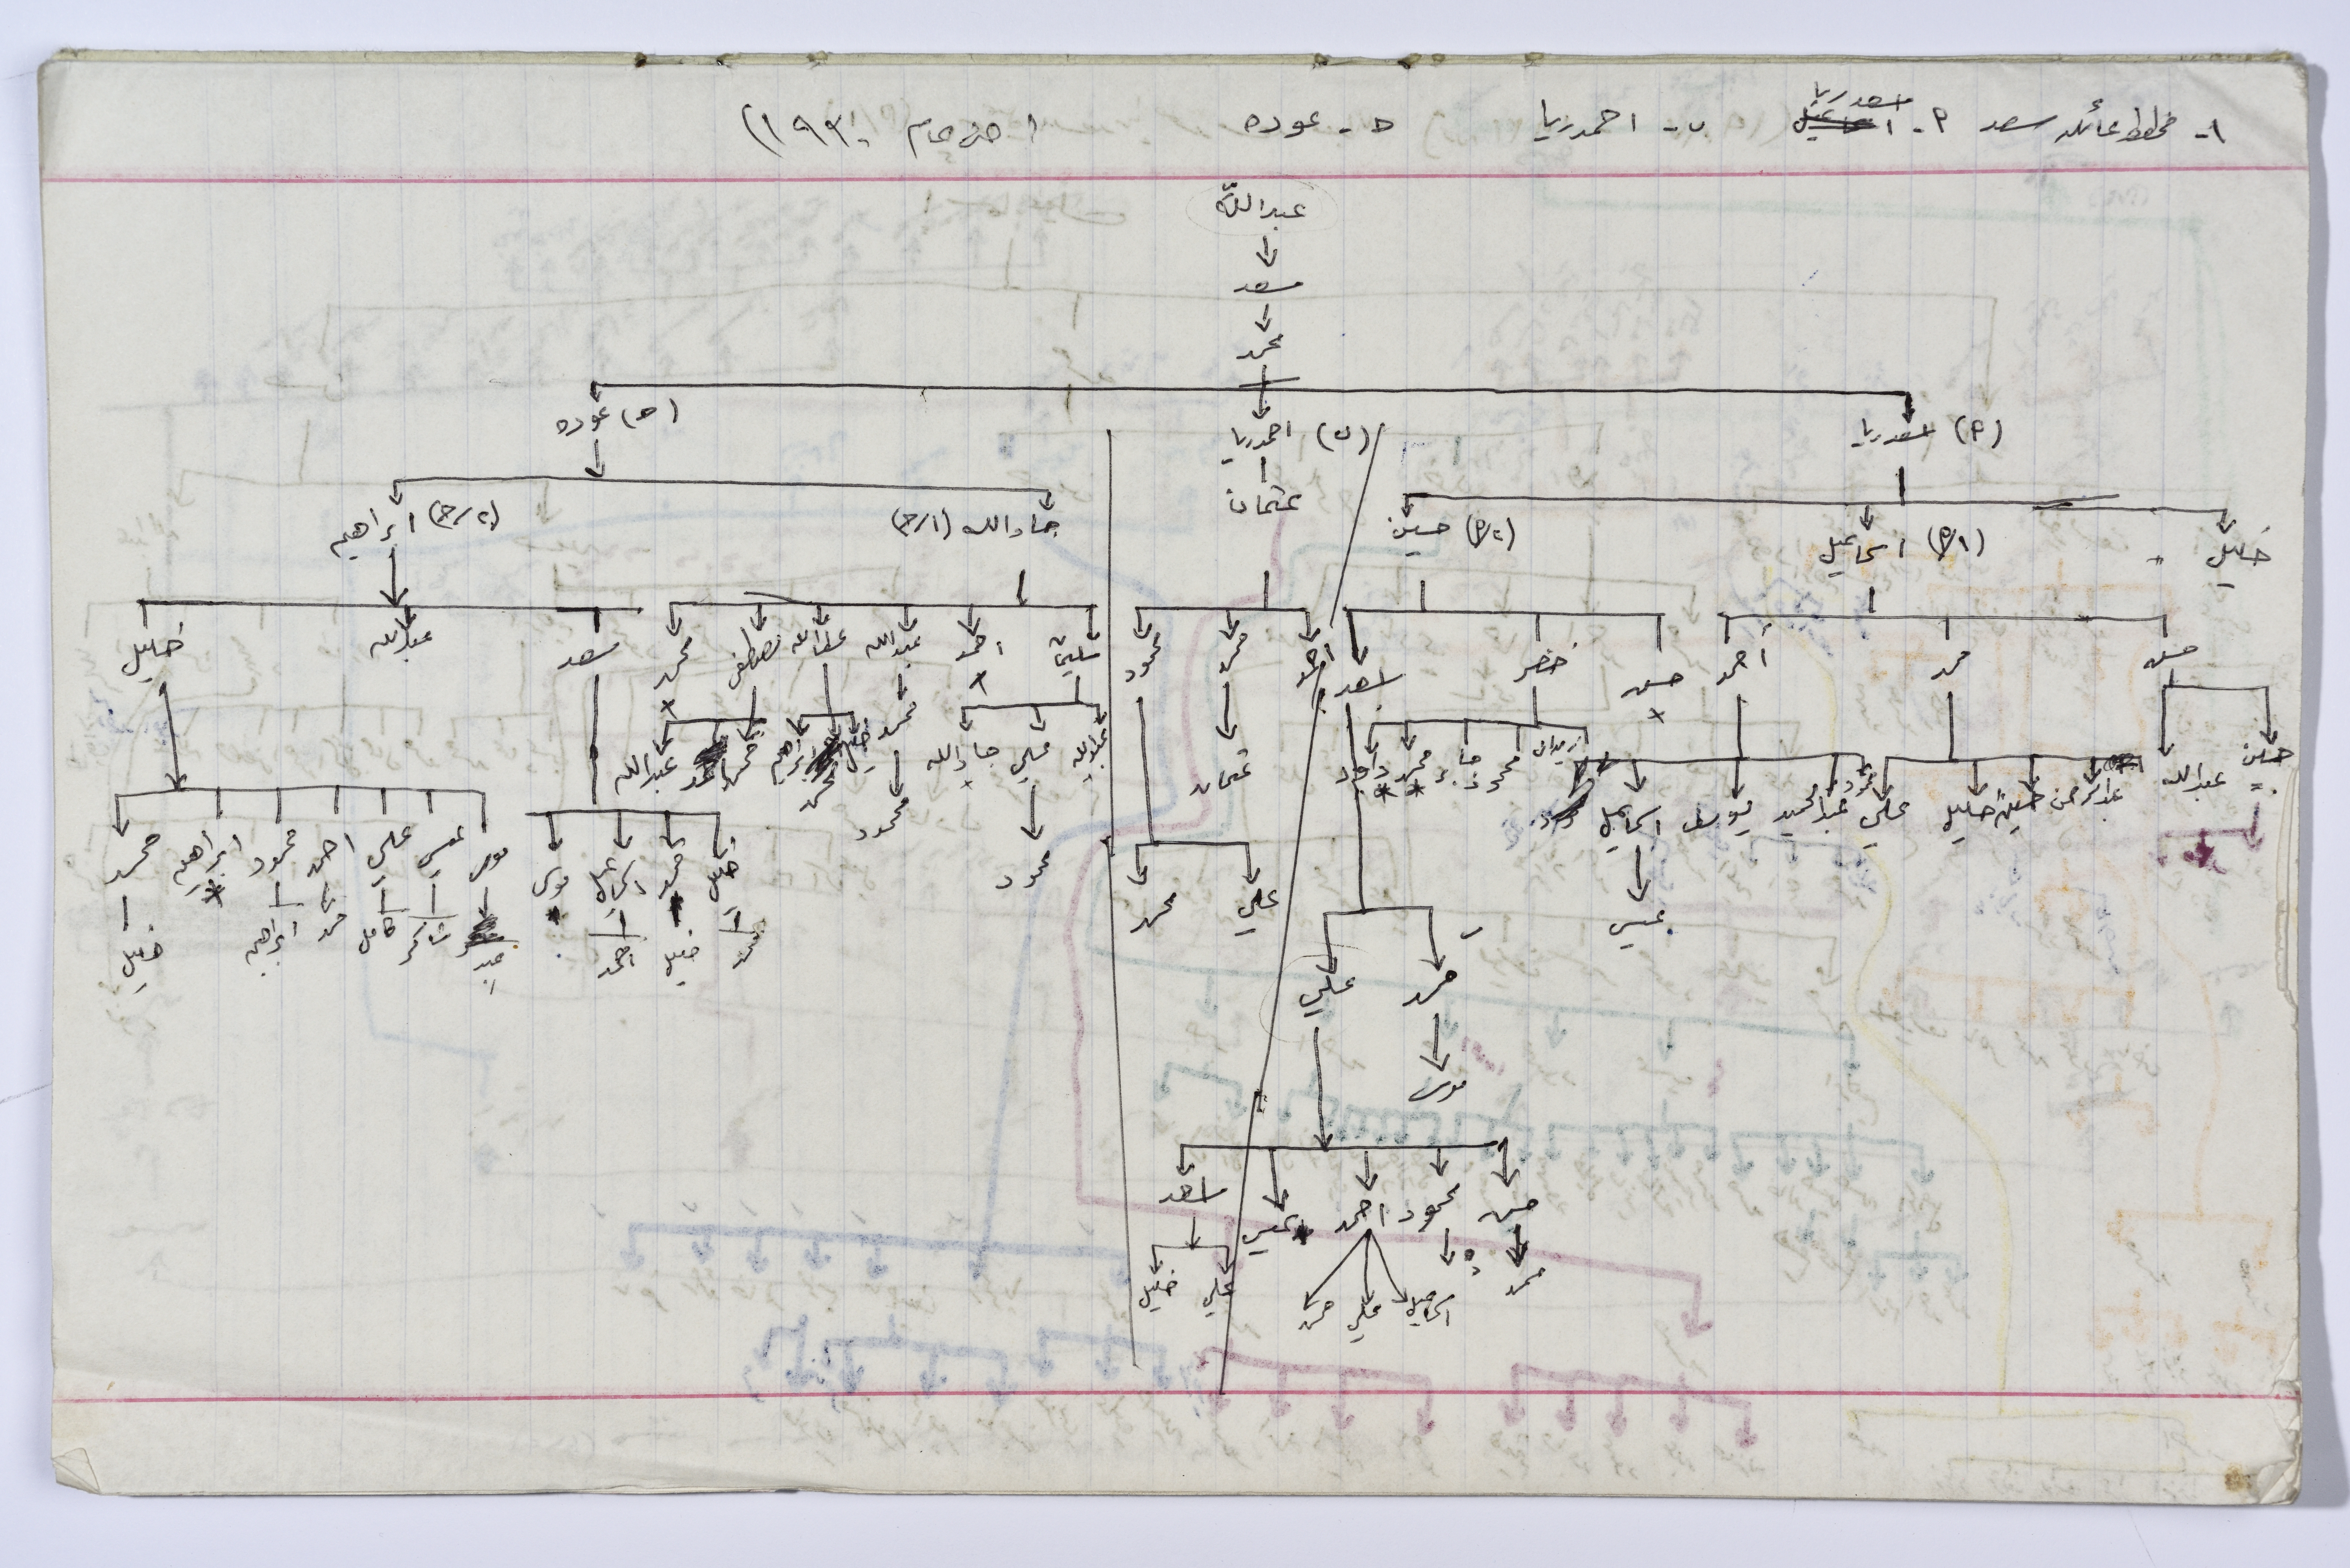 ١- مخطط عائلة سعد   ٢- اسعد ريا   ب- احمد ريا   ح- عوده   (حتى عام ١٩٣٠)
عبدالله
سعد
محمد
(٢) اسعد ريا   (ب) احمد ريا   (ح) عوده
خليل   (٢/١) اسماعيل   (٢/٢) حسين   عثمان   جادالله (ح/١)   (ح/٢) ابراهيم
حسن   محمد   أحمد   حسن   خضر   اسعد   احمد   محمد   محمود   سليمان   احمد   عبدالله   عطاالله   مصطفى   محمد   سعد   عبدالله   خليل
حسين   عبدالله   عبدالرحمن   حسين   خليل   علي   محمود   عبدالحميد   يوسف   اسماعيل   زيدان   محمود   جابر   محمد   داود   عثمان   عبدالله   علي   جادالله   محمد   خليل   محمد   ابراهيم   محمد   عبدالله
عيسى   علي   محمد   محمود   محمود   خليل   محمد   اسماعيل   موسى   موسى   عيسى   علي   احمد   محمود   ابراهيم   محمد
محمد   خليل   احمد   عيد   شاكر   كامل   محمد   ابراهيم   خليل
محمد   علي
موسى
حسن   محمود   احمد   عيسى   اسعد
محمد   اسماعيل   علي   حسن   علي   خليل